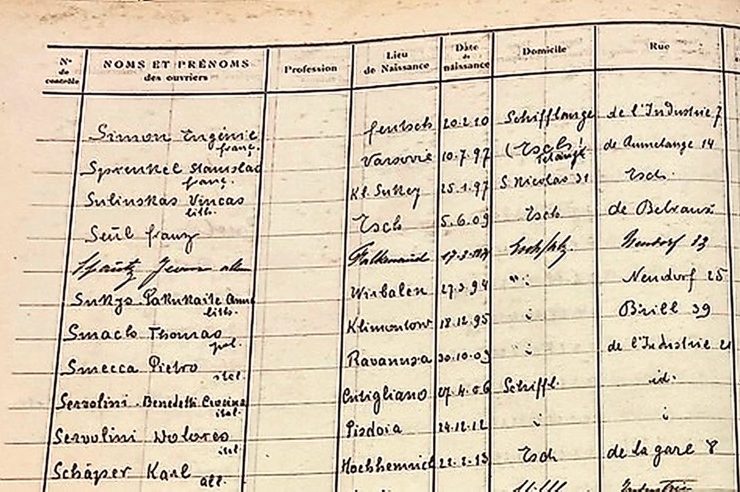 N° de contrôle NOMS ET PRÉNOMS des ouvriers Profession Lieu de Naissance Date de naissance Domicile Rue
Simon Eugénie franç. 20.2.10 Schifflange de l'Industrie 7
Sprenkel Stanislas franç. Varsovie 10.7.97 Esch de Annelange 14
Sulinskas Vincas lith. 25.1.97 S Nicolas 31 Esch
Seül franz Esch 5.6.09 Esch de Belvaux
Neudorf 13
Sukys Anna lith. Wirbalen 27.3.94 Neudorf 25
Smach Thomas pol. Klimontow 18.12.95 Brill 39
Smecca Pietro ital. Ravanusa 30.10.03 de l'Industrie 21
Servolini Benedetti ital. Cutigliano 07.4.06 Schiffl. id.
Servolini Dolores ital. Pistoia 24.12.12
Schäper Karl all. 22.2.13 Esch de la gare 8